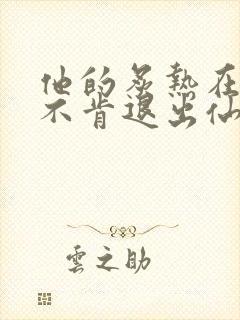 他的炙熱在
不肯退出仙
雲之助